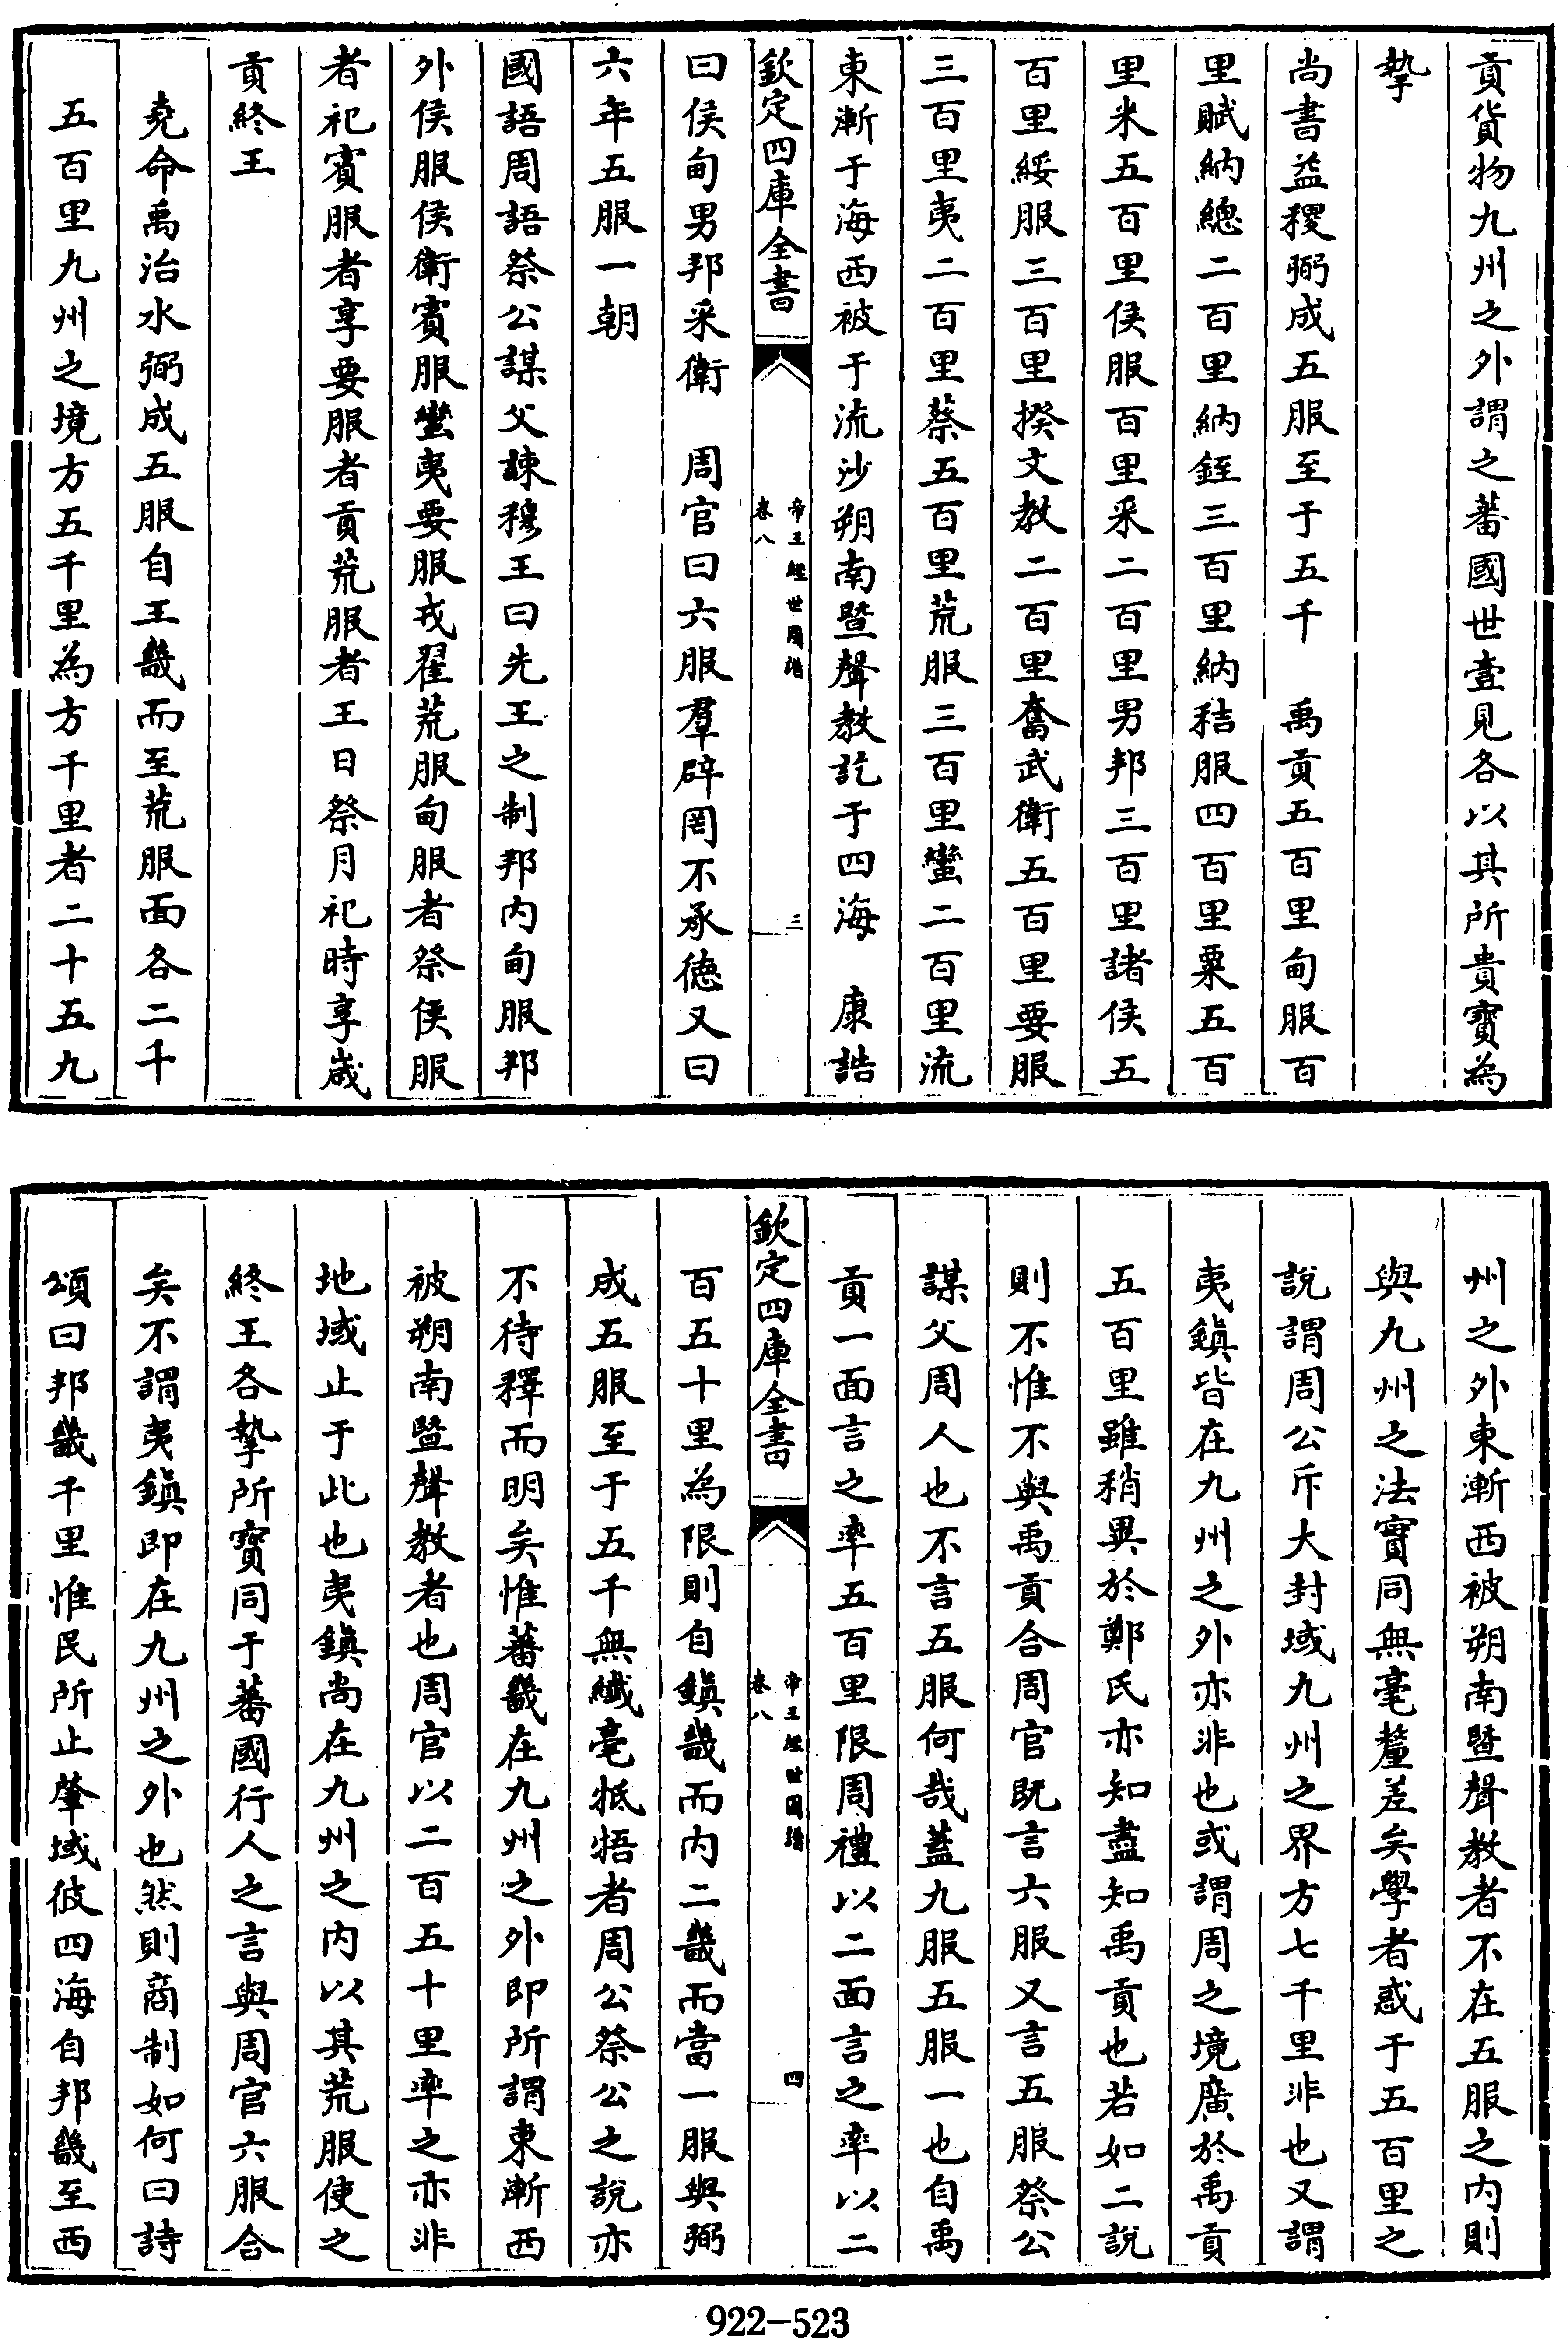 貢貨物九州之外謂之蕃國世壹見各以其所貴寳為
摯
尚書益稷弼成五服至于五千　禹貢五百里甸服百
里賦納總二百里納銍三百里納秸服四百里粟五百
里米五百里侯服百里采二百里男邦三百里諸侯五
百里綏服三百里揆文教二百里奮武衛五百里要服
三百里夷二百里蔡五百里荒服三百里蠻二百里流
東漸于海西被于流沙朔南暨聲教訖于四海　康誥
欽定四庫全書
帝王經世圖譜
卷八
三
曰侯甸男邦采衛　周官曰六服羣辟罔不承德又曰
六年五服一朝
國語周語祭公謀父諫穆王曰先王之制邦内甸服邦
外侯服侯衛賓服蠻夷要服戎翟荒服甸服者祭侯服
者祀賓服者享要服者貢荒服者王日祭月祀時享歲
貢終王
堯命禹治水弼成五服自王畿而至荒服面各二千
五百里九州之境方五千里為方千里者二十五九
州之外東漸西被朔南暨聲教者不在五服之内則
與九州之法實同無毫釐差矣學者惑于五百里之
說謂周公斥大封域九州之界方七千里非也又謂
夷鎮皆在九州之外亦非也或謂周之境廣於禹貢
五百里雖稍異於鄭氏亦知盡知禹貢也若如二說
則不惟不與禹貢合周官既言六服又言五服祭公
謀父周人也不言五服何哉蓋九服五服一也自禹
貢一面言之率五百里限周禮以二面言之率以二
欽定四庫全書
帝王經世圖譜
卷八
四
百五十里為限則自鎮畿而内二畿而當一服與弼
成五服至于五千無纎毫牴牾者周公祭公之說亦
不待釋而明矣惟蕃畿在九州之外即所謂東漸西
被朔南暨聲教者也周官以二百五十里率之亦非
地域止于此也夷鎮尚在九州之内以其荒服使之
終王各摯所寳同于蕃國行人之言與周官六服合
矣不謂夷鎮即在九州之外也然則商制如何曰詩
頌曰邦畿千里惟民所止肇域彼四海自邦畿至西
922-523